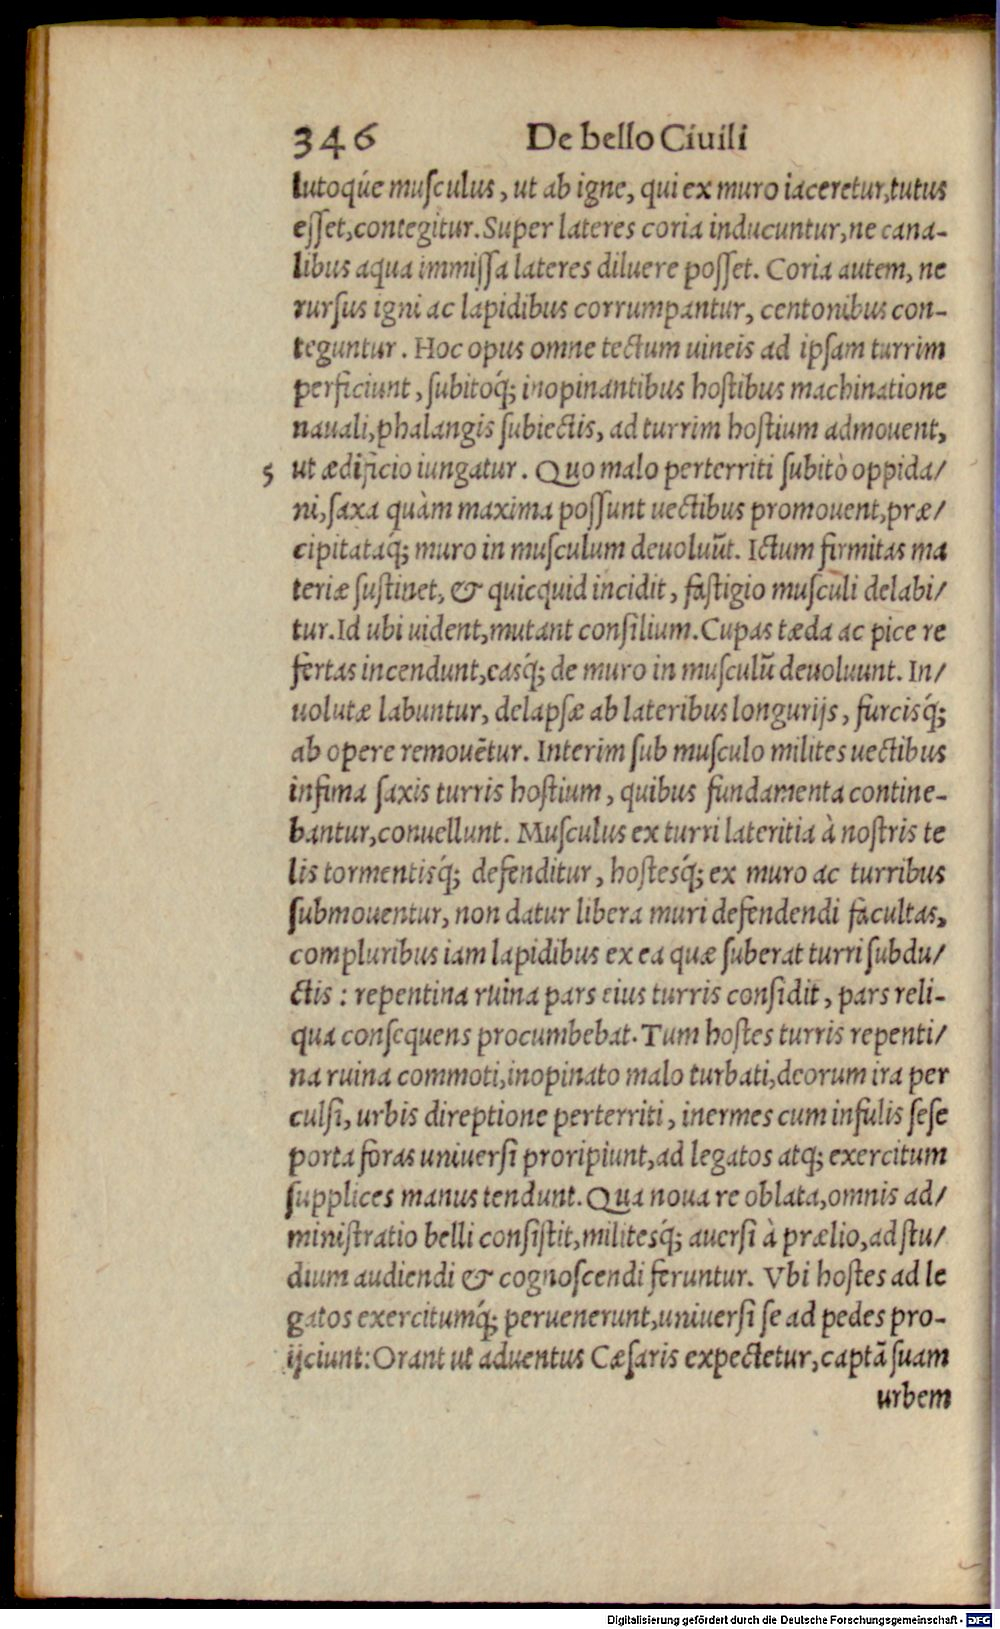 346 De bello Ciuili
lutoq́ue musculus, ut ab igne, qui ex muro iaceretur, tutus
eſſet, contegitur. Super lateres coria inducuntur, ne cana-
libus aqua immiſſa lateres diluere poſſet. Coria autem, ne
rurſus igni ac lapidibus corrumpantur, centonibus con-
teguntur. Hoc opus omne tectum uineis ad ipſam turrim
perficiunt, ſubitoq́; inopinantibus hoſtibus machinatione
nauali, phalangis ſubiectis, ad turrim hoſtium admouent,
5 ut ædificio iungatur. Quo malo perterriti ſubitò oppida/
ni, ſaxa quàm maxima poſſunt uectibus promouent, præ/
cipitataq́; muro in muſculum deuoluūt. Ictum firmitas ma
teriæ ſuſtinet, & quicquid incidit, faſtigio muſculi delabi/
tur. Id ubi uident, mutant conſilium. Cupas tæda ac pice re
fertas incendunt, easq́; de muro in muſculū deuoluunt. In/
uolutæ labuntur, delapſæ ab lateribus longurijs, furcisq́;
ab opere remouētur. Interim ſub muſculo milites uectibus
infima ſaxis turris hoſtium, quibus fundamenta contine-
bantur, conuellunt. Muſculus ex turri lateritia à noſtris te
lis tormentisq́; defenditur, hoſtesq́; ex muro ac turribus
ſubmouentur, non datur libera muri defendendi facultas,
compluribus iam lapidibus ex ea quæ ſuberat turri ſubdu/
ctis : repentina ruina pars eius turris conſidit, pars reli-
qua conſequens procumbebat. Tum hoſtes turris repenti/
na ruina commoti, inopinato malo turbati, deorum ira per
culſi, urbis direptione perterriti, inermes cum infulis ſeſe
porta foras uniuerſi proripiunt, ad legatos atq; exercitum
ſupplices manus tendunt. Qua noua re oblata, omnis ad/
miniſtratio belli conſiſtit, militesq́; auerſi à prælio, ad ſtu/
dium audiendi & cognoſcendi feruntur. Vbi hoſtes ad le
gatos exercitumq́; peruenerunt, uniuerſi ſe ad pedes pro-
ijciunt: Orant ut aduentus Cæſaris expectetur, captā ſuam
urbem
Digitalisierung gefördert durch die Deutsche Forschungsgemeinschaft - DFG